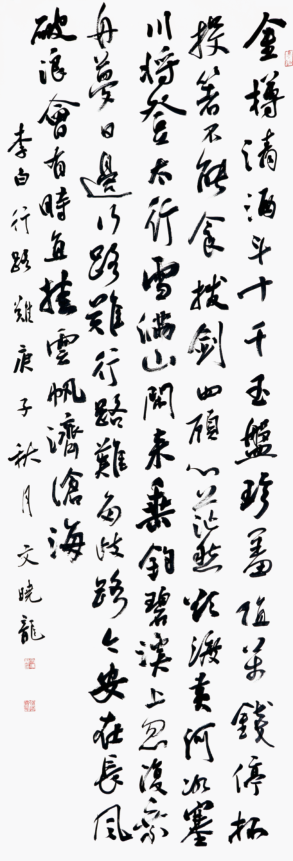 金樽清酒斗十千玉盤珍羞值萬錢停杯
投箸不能食拔劍四顧心茫然欲渡黃河冰塞
川將登太行雪滿山閑來垂釣碧溪上忽復乘
舟夢日邊行路難行路難多歧路今安在長風
破浪會有時直掛雲帆濟滄海
李白行路難庚子秋月文曉龍